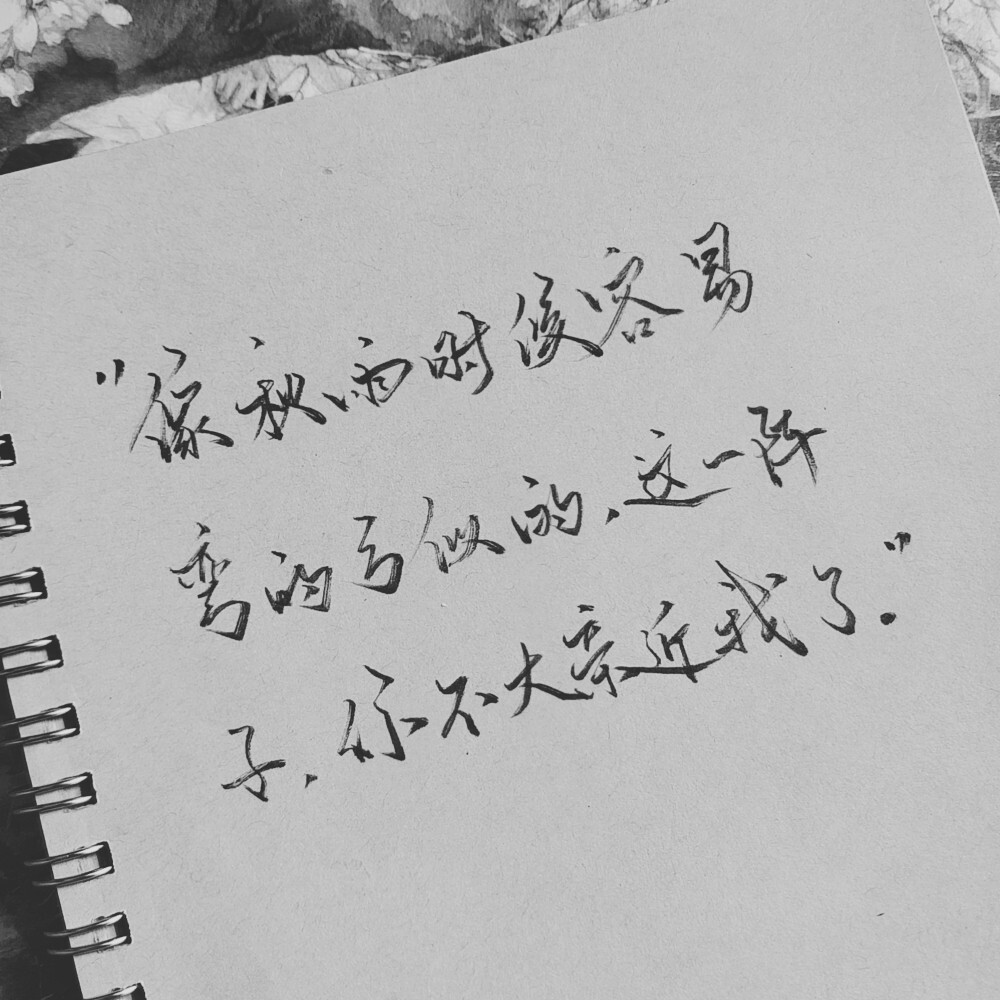 "像秋雨时候容易
弯的弓似的,这一阵
子,你不大亲近我了."